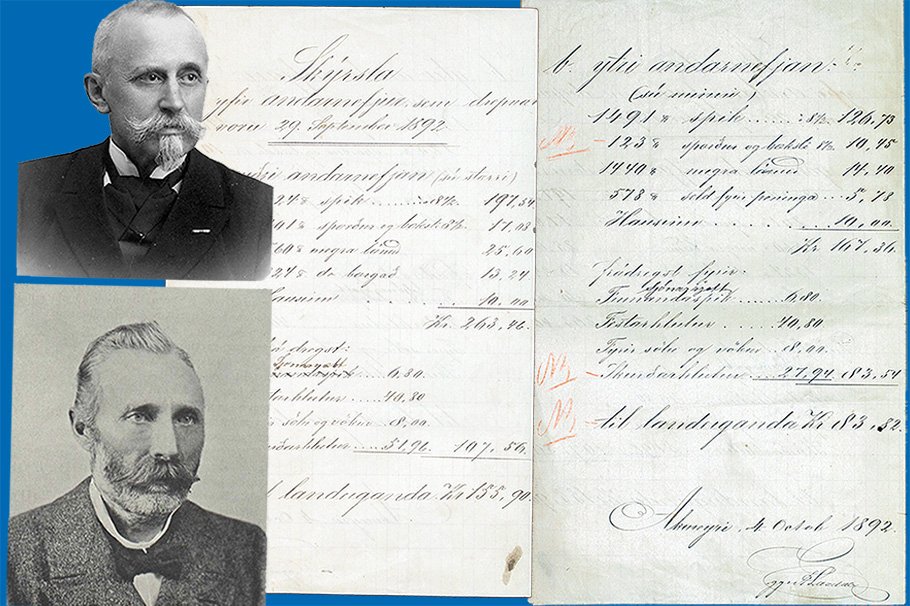 Skýrsla
yfir andarnefjur sem drepnar
voru 29. September 1892
andarnefjan (sú stærri)
24 ℔ spik 8% 197.54
91 ℔ sporður og bægsli 8% 17.08
60 ℔ megra 25.60
24 ℔ do borgað 13.24
Hausinn 10,00
Kr. 263,46
dregst:
6.80
Festarhlutur 40.80
sölu og vöku 8,00
Skurðarhlutur 51.96 107,56
til landeiganda Kr 155,90
b. yfir andarnefjan:
(sú minni)
1491 ℔ spik 8½ 126,73
123 ℔ sporður og bægsli 8½ 10,45
1440 ℔ megra 14,40
578 ℔ seld fyrir peninga 5,78
Hausinn 10,00
Kr 167,36
Frádregst fyrir:
Finnandaspik 6,80
Festarhlutur 40,80
Fyrir sölu og vöku 8,00
Skurðarhlutur 27,94 83,54
til landeiganda Kr 83,82
Akureyri, 4. Octob 1892.